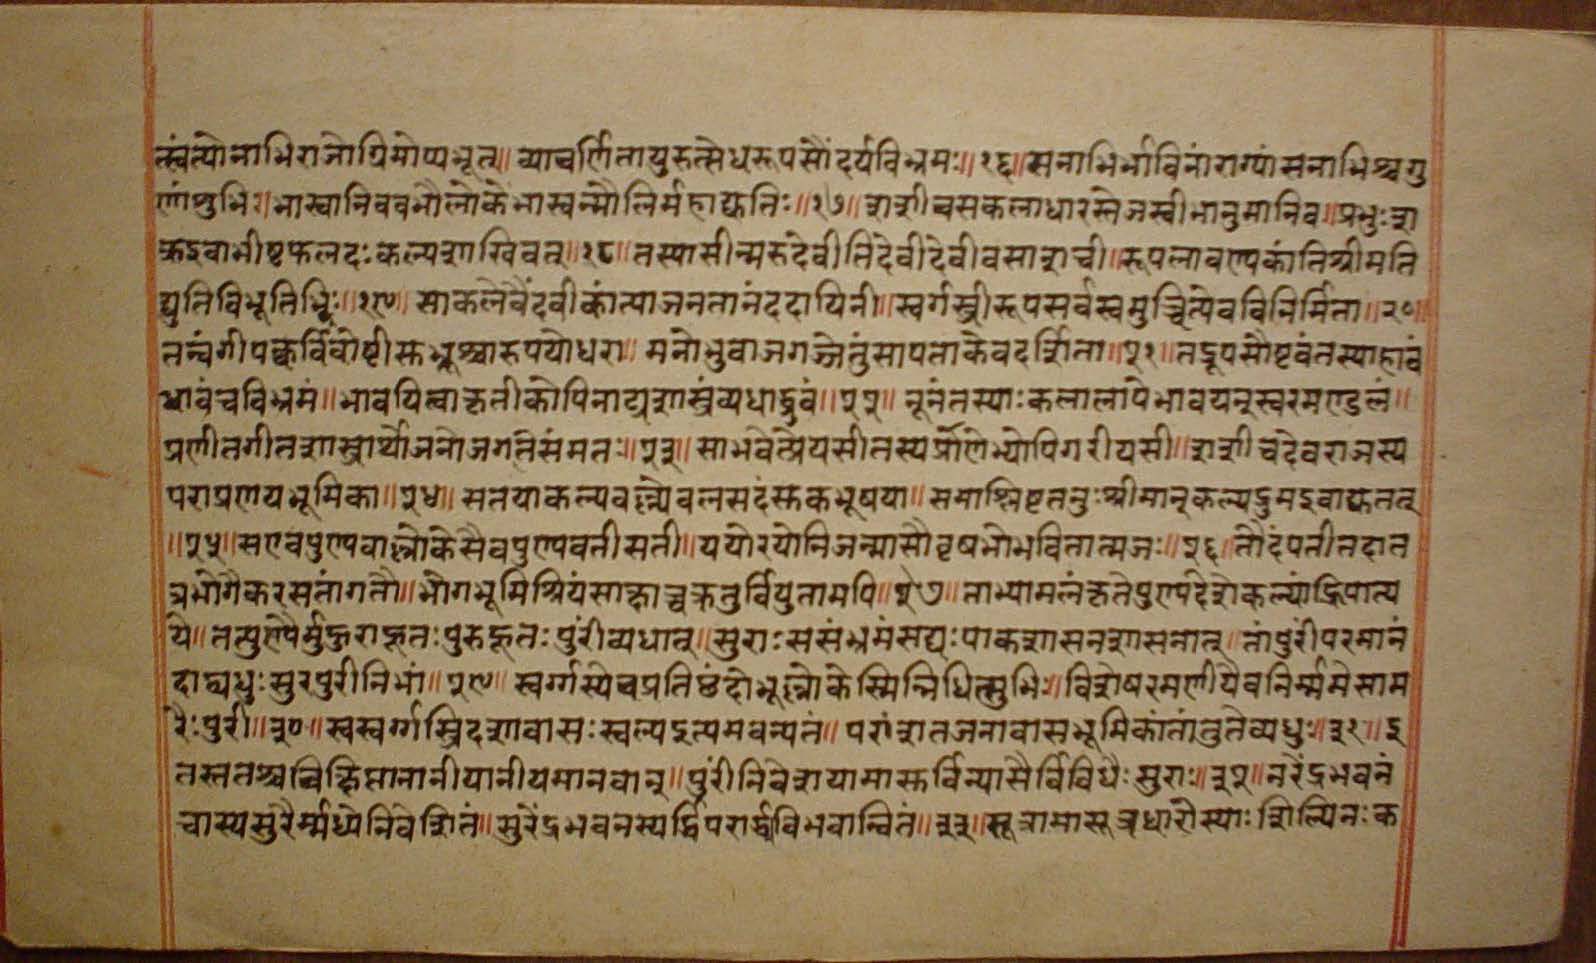 त्स्वंत्यो नाभिराजोग्रिमोप्यभूत्॥ व्यावर्णितायुरुत्सेधरूपसौंदर्यविभ्रमः॥१६॥सनाभिर्भाविनांराग्यांसनाभिश्चगु
णांशुभिः॥भास्वानिवबभौलोकेभास्वन्मौलिर्महाद्युतिः॥१७॥शशीवसकलाधारस्तेजस्वीभानुमानिव॥प्रभुःश
क्रइवाभीष्टफलदःकल्पशाखिवत्॥१८॥तस्यासीन्मरुदेवीतिदेवीदेवीवसाशची॥रूपलावण्यकांतिश्रीमति
द्युतिविभूतिभिः॥१९॥साकलेवैंदवीकांत्याजनतानंददायिनी॥स्वर्गस्त्रीरूपसर्वस्वमुच्चित्येवविनिर्मिता॥२०॥
तन्वंगीपक्वबिंबोष्टीसुभ्रूश्चारुपयोधरा॥मनोभुवाजगज्जेतुंसापताकेवदर्शिता॥२१॥तद्रूपसौष्टवंतस्याहावं
भावंचविभ्रमं॥भावयित्वाकृतीकोपिनाट्यशास्त्रंव्यधाद्ध्रुवं॥२२॥नूनंतस्याःकलालापेभावयन्स्वरमण्डलं॥
प्रणीतगीतशास्त्रार्थोजनोजगतिसंमतः॥२३॥साभवेत्प्रेयसीतस्यप्राणेभ्योपिगरीयसी॥शशीचदेवराजस्य
पराप्रणयभूमिका॥२४॥सतयाकल्पवल्ल्येवलसदंसुकभूषया॥समाश्लिष्टतनुःश्रीमान्कल्पद्रुमइवाद्युतत्
॥२५॥सएवपुण्यवाल्लोकेसैवपुण्यवतीसती॥ययोरयोनिजन्मासौवृषभोभवितात्मजः॥२६॥तौदंपतीतदात
त्रभोगैकरसतांगतौ॥भोगभूमिश्रियंसाक्षाच्चक्रतुर्वियुतामपि॥२७॥ताभ्यामलंकृतेपुण्यदेशेकल्पांह्रिपात्य
ये॥तत्पुण्यैर्मुहुराहूतःपुरुहूतःपुरींव्यधात्॥सुराःससंभ्रमंसद्यःपाकशासनशासनात्॥तांपुरींपरमानं
दाद्व्यधुःसुरपुरीनिभां॥२९॥स्वर्ग्गस्येवप्रतिछंदोभूलोकेस्मिन्निधित्सुभिः॥विशेषरमणीयैवनिर्म्ममेसाम
रैःपुरी॥३०॥स्वस्वर्ग्गस्त्रिदशावासःस्वल्पइत्यमवन्यतं॥परांशतजनावासभूमिकांतांतुतेव्यधुः॥३१॥इ
तस्ततश्चविक्षिप्तानानीयानीयमानवान्॥पुरींनिवेशयामासुर्विन्यासैर्विविधैःसुराः॥३२॥नरेंद्रभवनं
चास्यसुरैर्म्मध्येनिवेशितं॥सुरेंद्रभवनस्यर्द्धिपरार्द्ध्यविभवान्वितं॥३३॥सूत्रामासूत्रधारोस्याःशिल्पिनःक